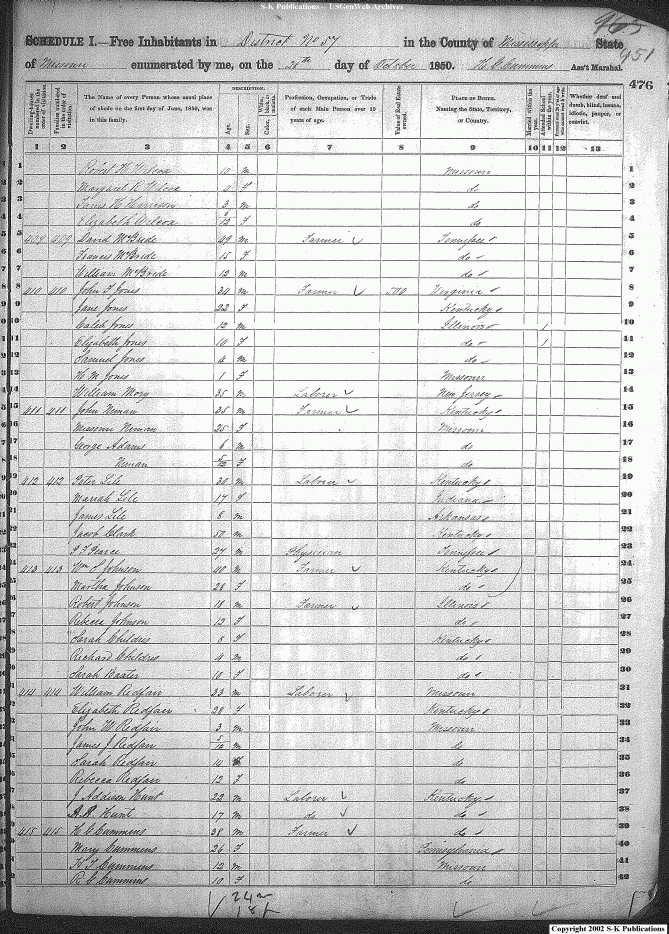 S-K Publications -- USGenWeb Archives
951
SCHEDULE I.—Free Inhabitants in District No 57 in the County of Mississippi State
of Missouri enumerated by me, on the 26th day of October 1850. H C Cummins Ass't Marshal.
476
Dwelling-houses numbered in the order of visitation.
Families numbered in the order of visitation.
The Name of every Person whose usual place of abode on the first day of June, 1850, was in this family.
DESCRIPTION.
Age.
Sex.
Color, White, black, or mulatto.
Profession, Occupation, or Trade of each Male Person over 15 years of age.
Value of Real Estate owned.
PLACE OF BIRTH. Naming the State, Territory, or Country.
Married within the year.
Attended School within the year.
Whether deaf and dumb, blind, insane, idiotic, pauper, or convict.
1 2 3 4 5 6 7 8 9 10 11 12 13
1 Robert H Wilcox 10 m Missouri 1
2 Margaret R Wilcox 4 F do 2
3 James H Harrison 3 m do 3
4 Elizabeth Wilcox 9/12 F do 4
5 409 409 David McBride 49 m Farmer Tennessee 5
6 Frances McBride 15 F do 6
7 William McBride 12 m do 7
8 410 410 John T Jones 34 m Farmer 500 Virginia 8
9 Jane Jones 22 F Kentucky 9
10 Caleb Jones 12 m Illinois 1 10
11 Elizabeth Jones 10 F do 1 11
12 Samuel Jones 4 m do 12
13 H M Jones 1 F Missouri 13
14 William Mory 35 m Laborer New Jersey 14
15 411 411 John Neman 35 m Farmer Kentucky 15
16 Missouri Neman 25 F Missouri 16
17 George Adams 6 m do 17
18 Neman F do 18
19 412 412 Peter Lile 30 m Laborer Kentucky 19
20 Mariah Lile 17 F Indiana 20
21 James Lile 8 m Arkansas 21
22 Jacob Clark 50 m Kentucky 22
23 Pearce 27 m Physician Tennessee 23
24 413 413 Wm S Johnson 40 m Farmer Kentucky 24
25 Martha Johnson 28 F do 25
26 Robert Johnson 18 m Farmer Illinois 26
27 Rebecca Johnson 12 F do 27
28 Sarah Childres 8 F Kentucky 28
29 Richard Childres 4 m do 29
30 Sarah Baxter 10 F do 30
31 414 414 William Redfair 33 m Laborer Missouri 31
32 Elizabeth Redfair 28 F Kentucky 32
33 John W Redfair 3 m Missouri 33
34 James J Redfair 5/12 m do 34
35 Sarah Redfair 14 do 35
36 Rebecca Redfair 12 F do 36
37 J Addison Hunt 22 m Laborer Kentucky 37
38 A. R Hunt 17 m do do 38
39 415 415 H C Cummins 38 m Farmer do 39
40 Mary Cummins 26 F Pennsylvania 40
41 H T Cummins 12 m Missouri 41
42 R C Cummins 10 F do 42
24
18
Copyright 2002 S-K Publications